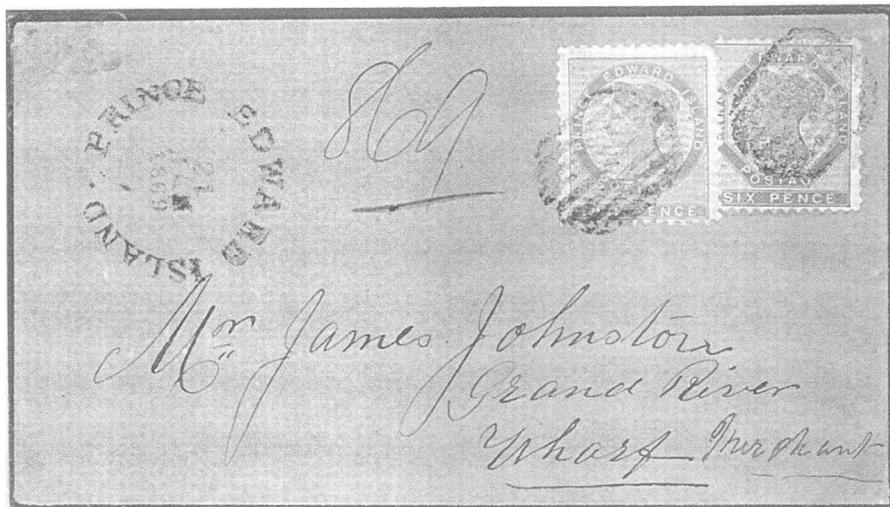 PRINCE EDWARD ISLAND
21
1869
869
PRINCE EDWARD ISLAND
PENCE
EDWARD ISLAND
POSTAG
SIX PENCE
Mr James Johnston
Grand River
Wharf Merchant